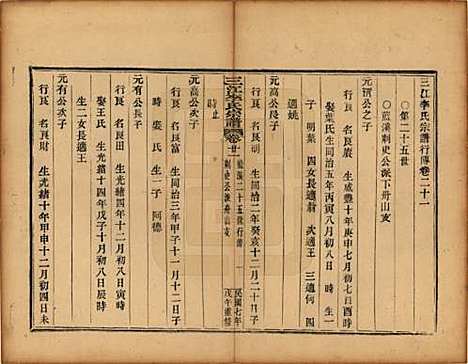 三江李氏宗譜行傳卷二十一
○第二十五世
○藍溪刺史公派下舟山支
元潤公之子
行良 名良慶 生咸豐十年庚申七月初八日辰時
娶葉氏生同治五年丙寅八月初八日寅時
子 明葉 四女長適翁 次適王 三適何 四
適姚
元高公長子
行良 名良明 生同治二年癸亥十二月二十日子
時止
三江李氏宗譜 卷廿一 藍溪二十五世行傳 刺史公派舟山支 民國七年戊午重修
元高公次子
行良 名良富 生同治三年甲子十一月十二日子
時 娶氏 生一子 阿德
元有公長子
行良 名良田 生光緒四年十二月初八日寅時
娶王氏 生光緒十四年戊子十月初八日酉時
生二女長適王
元有公次子
行良 名良 生光緒十年甲申十二月初四日未